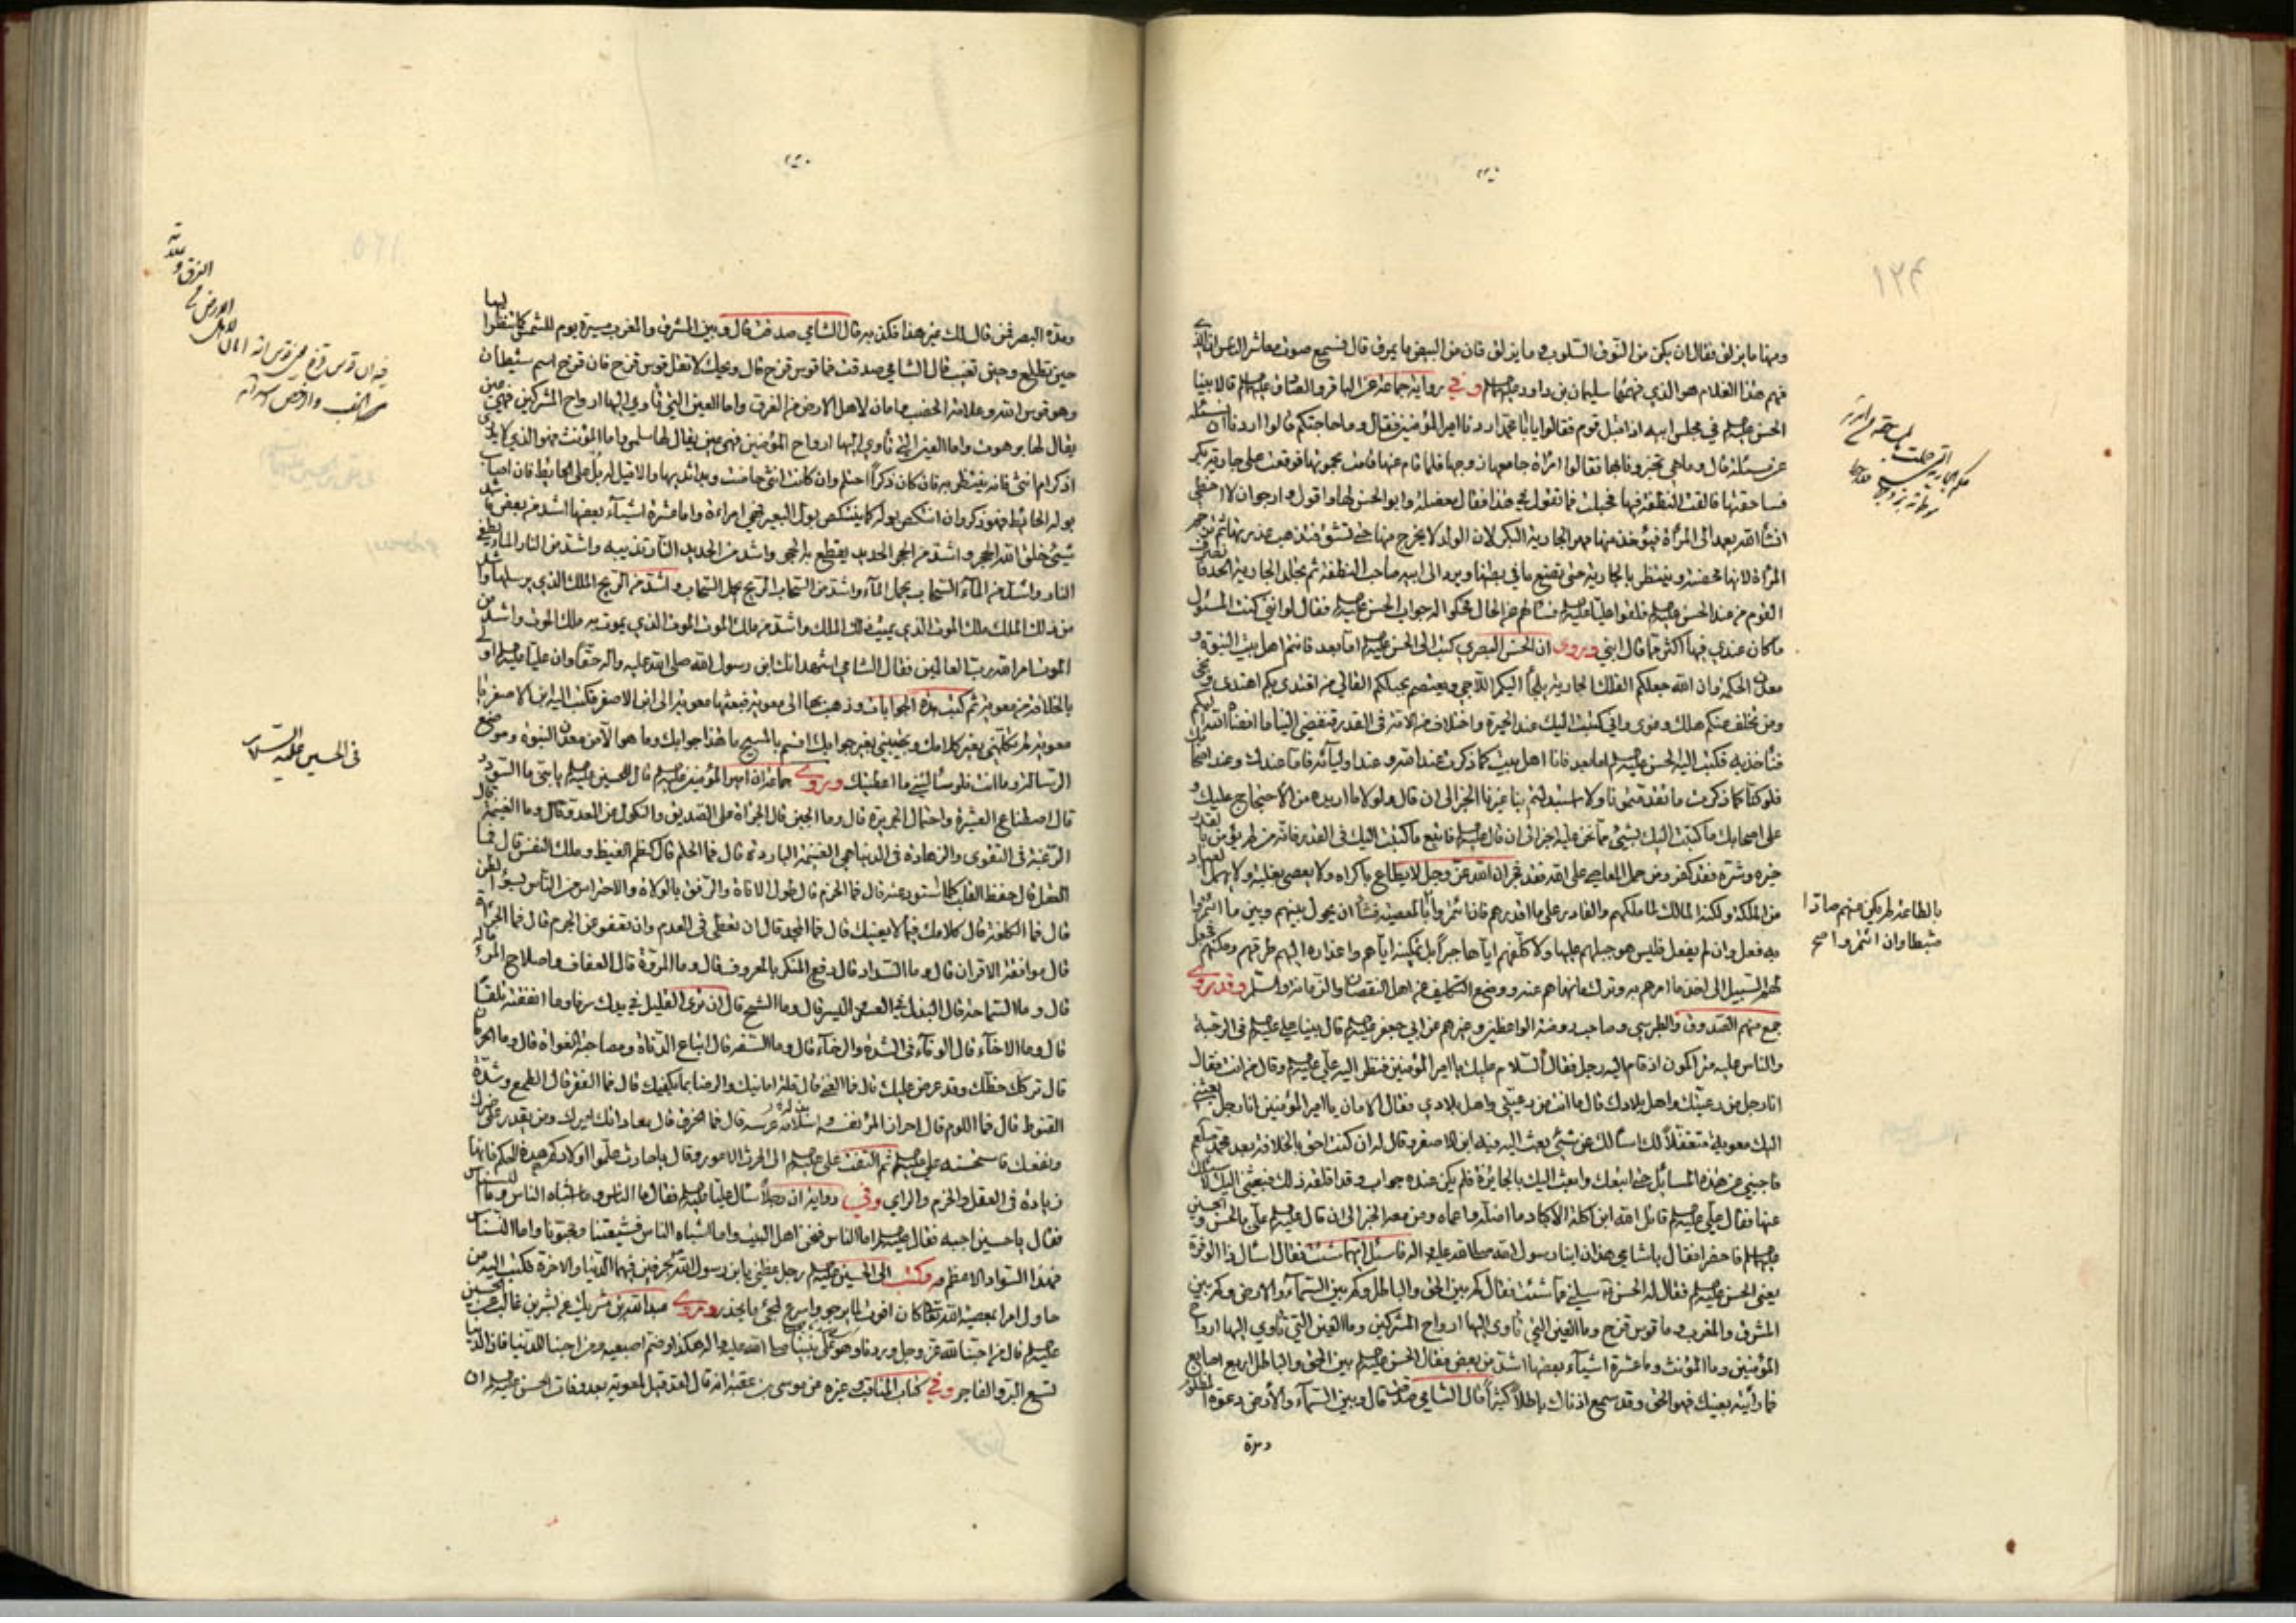 ومنها ما يزلق فقال ان يكن من النوق السلوب وما يزلق فان من البيض ما يمرق قال فسمع صوت معاشر الناس ان الذى
فهم هذا الغلام هو الذي فهمها سليمان بن داود عليهما السلم وفي رواية جماعة عن الباقر والصادق عليهما السلم قالا بينا
الحسن عليه السلم في مجلس ابيه اذ اقبل قوم فقالوا يا ابا محمد اردنا امير المؤمنين فقال وما حاجتكم قالوا اردنا ان نسئله
عن مسئلة قال وما هي تخبرونا بها فقالوا امرأة جامعها زوجها فلما قام عنها قامت بحموتها فوقعت على جارية بكر
فساحقتها فالقت النطفة فيها فحملت فما تقول في هذا فقال معضلة وابو الحسن لها واقول وارجو ان لا اخطئ
انشاء الله يعمد الى المرأة فيؤخذ منها مهر الجارية البكر لان الولد لا يخرج منها حتى تشق فتذهب عذرتها ثم ترجم
المرأة لانها محصنة وينتظر بالجارية حتى تضع ما في بطنها ويرد الى ابيه صاحب النطفة ثم تجلد الجارية الحد فانصرف
القوم من عند الحسن عليه السلم فلقوا عليا عليه السلم فسألهم عن الحال فحكوا له جواب الحسن عليه السلم فقال لو انني كنت المسئول
ما كان عندي فيها اكثر مما قال ابني وروى ان الحسن البصري كتب الى الحسن عليه السلم اما بعد فانتم اهل بيت النبوة و
معدن الحكمة وان الله جعلكم الفلك الجارية يلجأ اليكم اللاجي ويعتصم بحبلكم الغالي من اقتدى بكم اهتدى ونجى
ومن تخلف عنكم هلك وغوى واني كتبت اليك عند الحيرة واختلاف الامة في القدر فتفضي الينا ما افضاه الله اليكم
فنأخذ به فكتب اليه الحسن عليه السلم اما بعد فانا اهل بيت كما ذكرت عند الله وعند اوليائه فاما عندك وعند اصحابك
فلو كنا كما ذكرت ما تقدمتمونا ولا استبدلتم بنا غيرنا الخبر الى ان قال ولولا ما اريده من الاحتجاج عليك و
على اصحابك ما كتبت اليك بشيء مما نحن عليه الى ان قال عليه السلم فاتبع ما كتبت اليك في القدر فانه من لم يؤمن بالقدر
خيره وشره فقد كفر ومن حمل المعاصي على الله فقد فجر ان الله عز وجل لا يطاع باكراه ولا يعصى بغلبة ولا يهمل العباد
من المملكة ولكنه المالك لما ملكهم والقادر على ما اقدرهم فان ائتمروا بالمعصية فشاء ان يحول بينهم وبين ما ائتمروا
به فعل وان لم يفعل فليس هو حملهم عليها ولا كلفهم اياها جبرا بل تمكينه اياهم واعذاره اليهم طرقهم ومكنهم فجعل
لهم السبيل الى اخذ ما امرهم به وترك ما نهاهم عنه ووضع التكليف عن اهل النقصان والزمانة والسلم وقد روى
جمع منهم الصدوق والطبرسي وصاحب روضة الواعظين وغيرهم عن ابي جعفر عليه السلم قال بينا علي عليه السلم في الرحبة
والناس عليه متراكمون اذ قام اليه رجل فقال السلام عليك يا امير المؤمنين فنظر اليه علي عليه السلم وقال من انت فقال
انا رجل من رعيتك واهل بلادك قال ما انت من رعيتي واهل بلادي فقال الامان يا امير المؤمنين انا رجل بعثني
اليك معوية متغفلا لك اسألك عن شيء بعث اليه فيه ابن الاصفر وقال له ان كنت احق بالخلافة بعد محمد صلعم
فاجبني عن هذه المسائل حتى اتبعك وابعث اليك بالجائزة فلم يكن عنده جواب وقد اقلقه ذلك فبعثني اليك لاسئلك
عنها فقال علي عليه السلم قاتل الله ابن اكلة الاكباد ما اضله واعماه ومن معه الخبر الى ان قال عليه السلم علي بالحسن والحسين
عليهما السلم فاحضرا فقال يا شامي هذان ابنا رسول الله صلى الله عليه واله فاسئل ايهما شئت فقال اسأل ذا الوفرة
يعني الحسن عليه السلم فقال له الحسن سلني عما شئت فقال كم بين الحق والباطل وكم بين السماء والارض وكم بين
المشرق والمغرب وما قوس قزح وما العين التي تأوى اليها ارواح المشركين وما العين التي تأوي اليها ارواح
المؤمنين وما المؤنث وما عشرة اشياء بعضها اشد من بعض فقال الحسن عليه السلم بين الحق والباطل اربع اصابع
فما رأيته بعينك فهو الحق وقد تسمع اذناك باطلا كثيرا قال الشامي صدقت قال وبين السماء والارض دعوة المظلوم
ومدة
بالطاعة لم يكن عنهم صادّا
مثبطا وان ائتمروا صح
ومد البصر فمن قال لك غير هذا فكذبه قال الشامي صدقت قال وبين المشرق والمغرب مسيرة يوم للشمس تنظر اليها
حين تطلع وحين تغيب قال الشامي صدقت فما قوس قزح قال ويحك لا تقل قوس قزح فان قزح اسم شيطان
وهو قوس الله وعلامة الخصب وامان لاهل الارض من الغرق واما العين التي تأوي اليها ارواح المشركين فهي عين
يقال لها برهوت واما العين التي تأوي اليها ارواح المؤمنين فهي عين يقال لها سلمى واما المؤنث فهو الذي لا يدرى
اذكر ام انثى فانه ينتظر به فان كان ذكرا احتلم وان كانت انثى حاضت وبدا ثديها والا قيل له بل على الحائط فان اصاب
بوله الحائط فهو ذكر وان انتكص بوله كما ينتكص بول البعير فهي امراءة واما عشرة اشياء بعضها اشد من بعض فاشد
شيء خلق الله الحجر واشد من الحجر الحديد يقطع به الحجر واشد من الحديد النار تذيبه واشد من النار الماء يطفئ
النار واشد من الماء السحاب يحمل الماء واشد من السحاب الريح يحمل السحاب واشد من الريح الملك الذي يرسلها واشد
من ذلك الملك ملك الموت الذي يميت الملك واشد من ملك الموت الموت الذي يموت به ملك الموت واشد من
الموت امر الله رب العالمين فقال الشامي اشهد انك ابن رسول الله صلى الله عليه واله حقا وان عليا عليه السلم اولى
بالخلافة من معوية ثم كتب هذه الجوابات وذهب بها الى معوية فبعثها معوية الى ابن الاصفر فكتب اليه ابن الاصفر يا
معوية لم تكلمني بغير كلامك وتجيبني بغير جوابك اقسم بالمسيح ما هذا جوابك وما هو الا من معدن النبوة وموضع
الرسالة وما انت فلو سألتني ما اعطيتك وروى جماعة ان امير المؤمنين عليه السلم قال للحسين عليه السلم يا بني ما السؤدد
قال اصطناع العشيرة واحتمال الجريرة قال وما الجبن قال الجرأة على الصديق والنكول عن العدو قال وما الغنيمة قال
الرغبة في التقوى والزهادة في الدنيا هي الغنيمة الباردة قال فما الحلم قال كظم الغيظ وملك النفس قال فما
العقل قال حفظ القلب كلما استودعته قال فما الحزم قال طول الاناة والرفق بالولاة والاحتراس من الناس بسوء الظن
قال فما الكلفة قال كلامك فيما لا يعنيك قال فما المجد قال ان تعطى في العدم وان تعفو عن الجرم قال فما الجرأة
قال موافقة الاقران قال وما السداد قال دفع المنكر بالمعروف قال وما المروة قال العفاف واصلاح المرء ماله
قال وما السماحة قال البذل في العسر واليسر قال وما الشح قال ان ترى القليل في يدك سرفا وما انفقته تلفا
قال وما الاخاء قال الوفاء في الشدة والرخاء قال وما السفه قال اتباع الدناة ومصاحبة الغواة قال وما الحرمان
قال تركك حظك وقد عرض عليك قال فما الغنى قال قلة امانيك والرضا بما يكفيك قال فما الفقر قال الطمع وشدة
القنوط قال فما اللوم قال احراز المرء نفسه واسلامه عرسه قال فما الخرق قال معاداتك اميرك ومن يقدر على ضرك
ونفعك فاستحسنه علي عليه السلم ثم التفت علي عليه السلم الى الحرث الاعور وقال يا حارث علموا اولادكم هذه الحكم فانها
زيادة في العقل والحزم والراي وفي رواية ان رجلا سأل عليا عليه السلم فقال ما الناس وما اشباه الناس وما النسناس
فقال يا حسين اجبه فقال عليه السلم اما الناس فنحن اهل البيت واما اشباه الناس فشيعتنا ومحبونا واما النسناس
فهذا السواد الاعظم وكتب الى الحسين عليه السلم رجل عظني يا ابن رسول الله بحرفين فيهما الدنيا والاخرة فكتب اليه من
حاول امرا بمعصية الله تعالى كان افوت لما يرجو واسرع لمجئ ما يحذر وروى عبد الله بن شريك عن بشر بن غالب عن الحسين
عليه السلم قال من احبنا لله عز وجل ورد هو نحن على نبينا صلى الله عليه واله هكذا وضم اصبعيه ومن احبنا للدنيا فان الدنيا
تسع البر والفاجر وفي كتاب المناقب وغيره عن موسى بن عقبة انه قال لقد قيل لمعوية بعد وفات الحسن عليه السلم ان
في الحسين عليه السلام